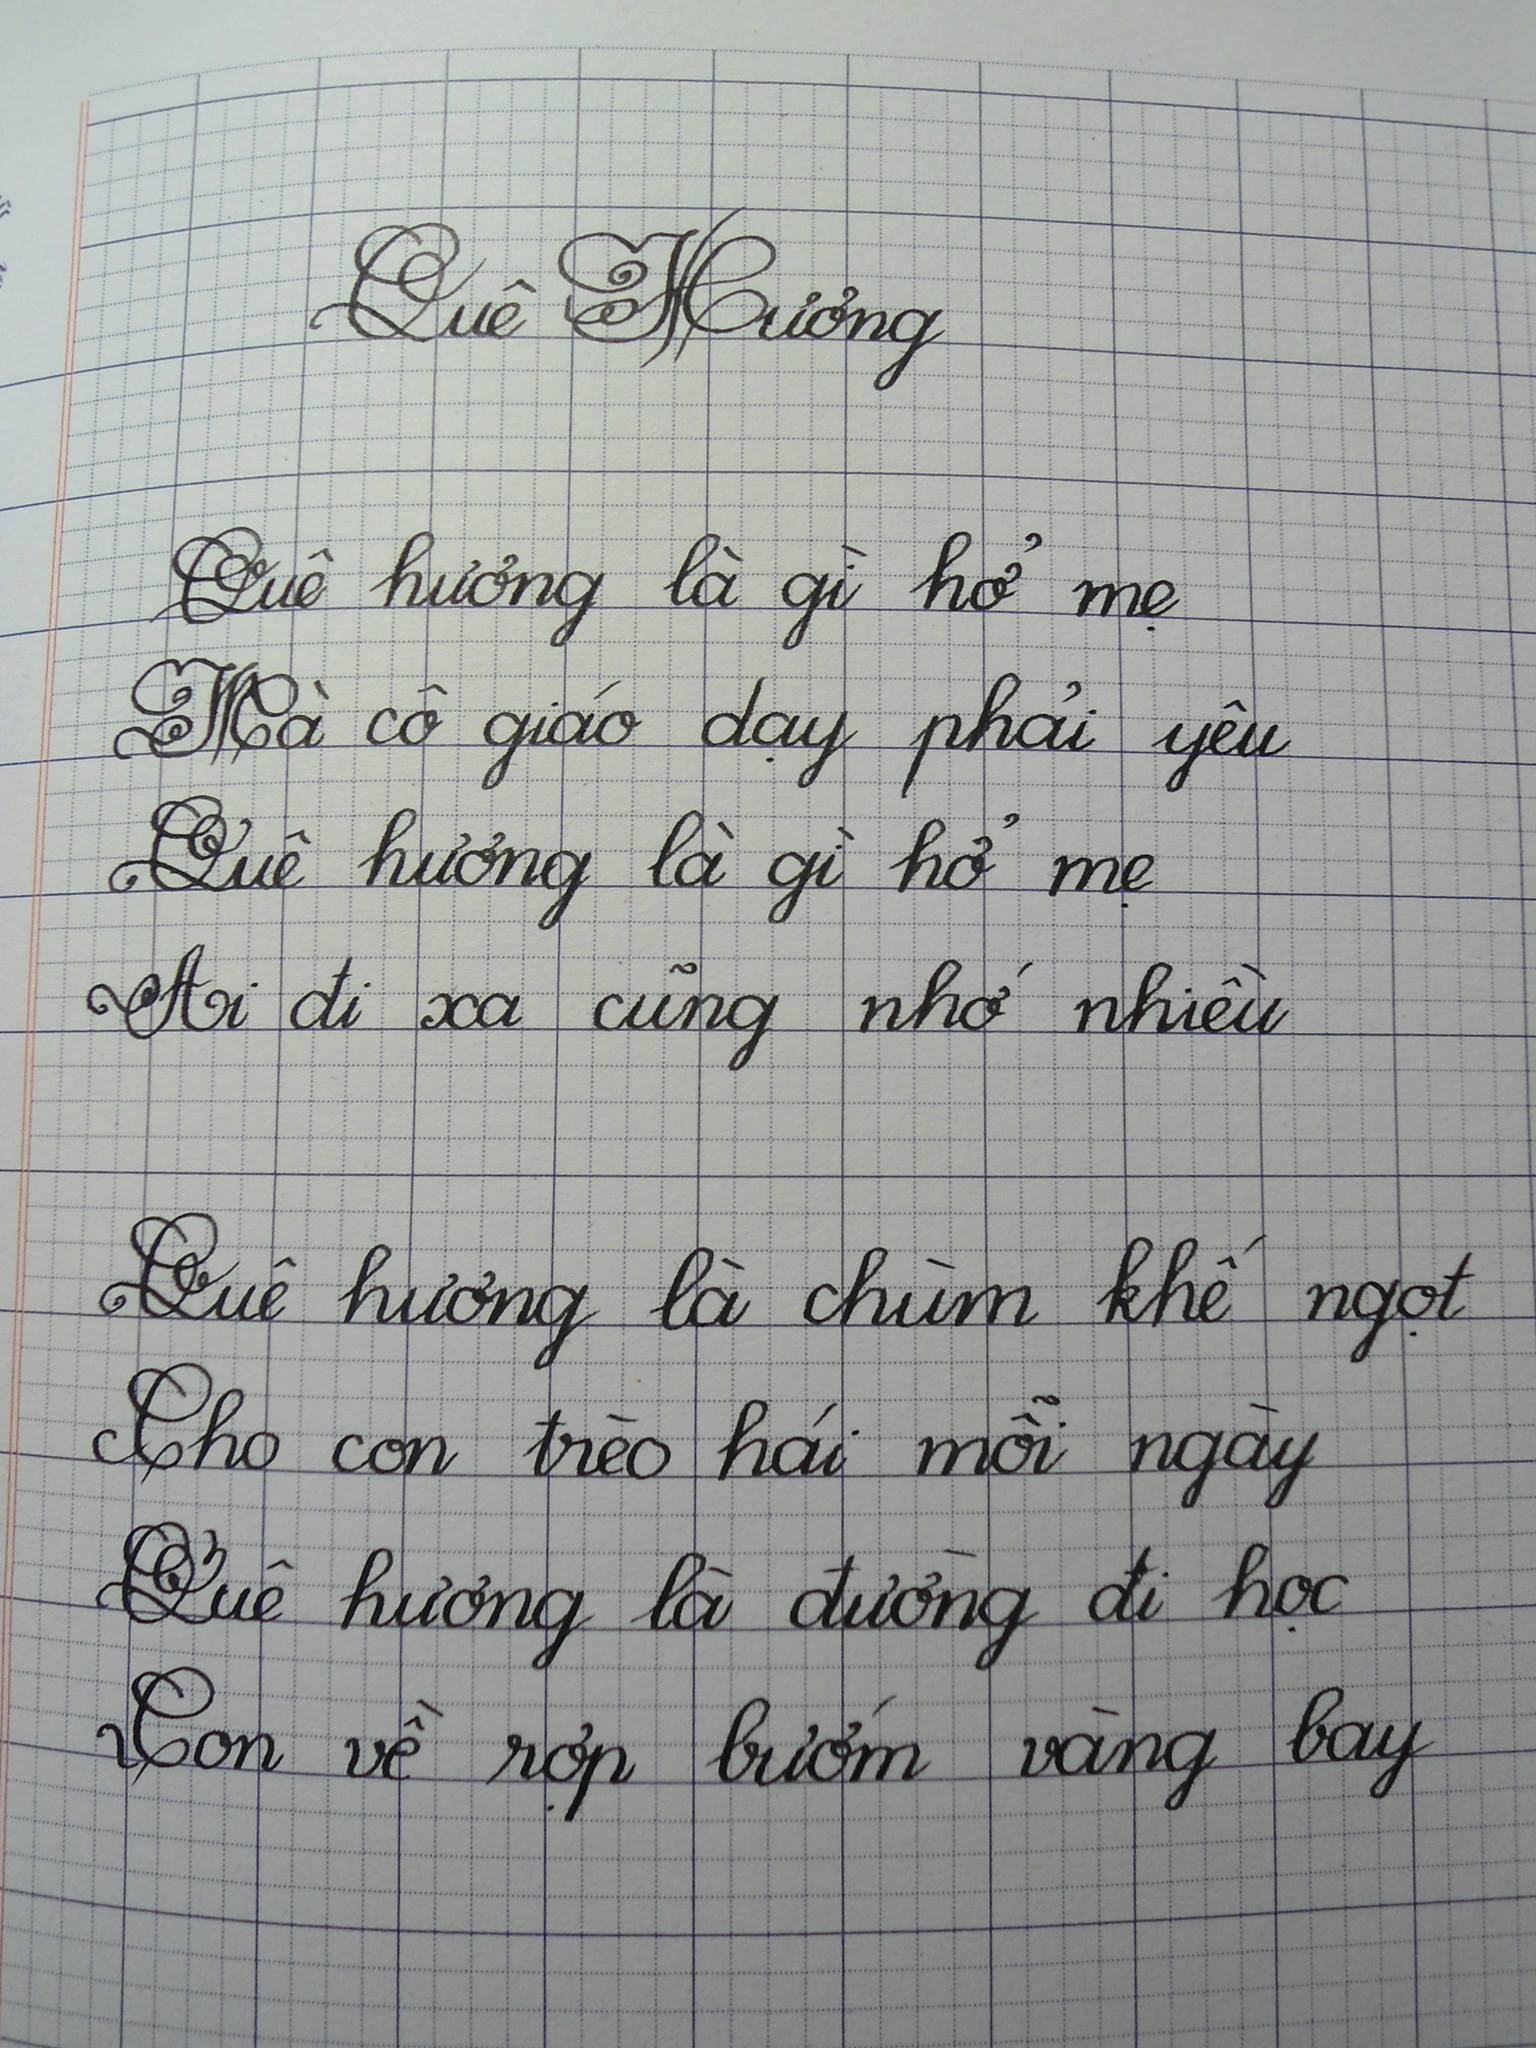 Quê Hương
Quê hương là gì hở mẹ
Mà cô giáo dạy phải yêu
Quê hương là gì hở mẹ
Ai đi xa cũng nhớ nhiều
Quê hương là chùm khế ngọt
Cho con trèo hái mỗi ngày
Quê hương là đường đi học
Con về rợp bướm vàng bay